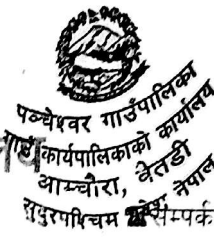 पञ्चेश्वर गाउँपालिका
गाउँ कार्यपालिकाको कार्यालय
आम्चौरा, बैतडी
सुदुरपश्चिम प्रदेश नेपाल
सम्पर्क